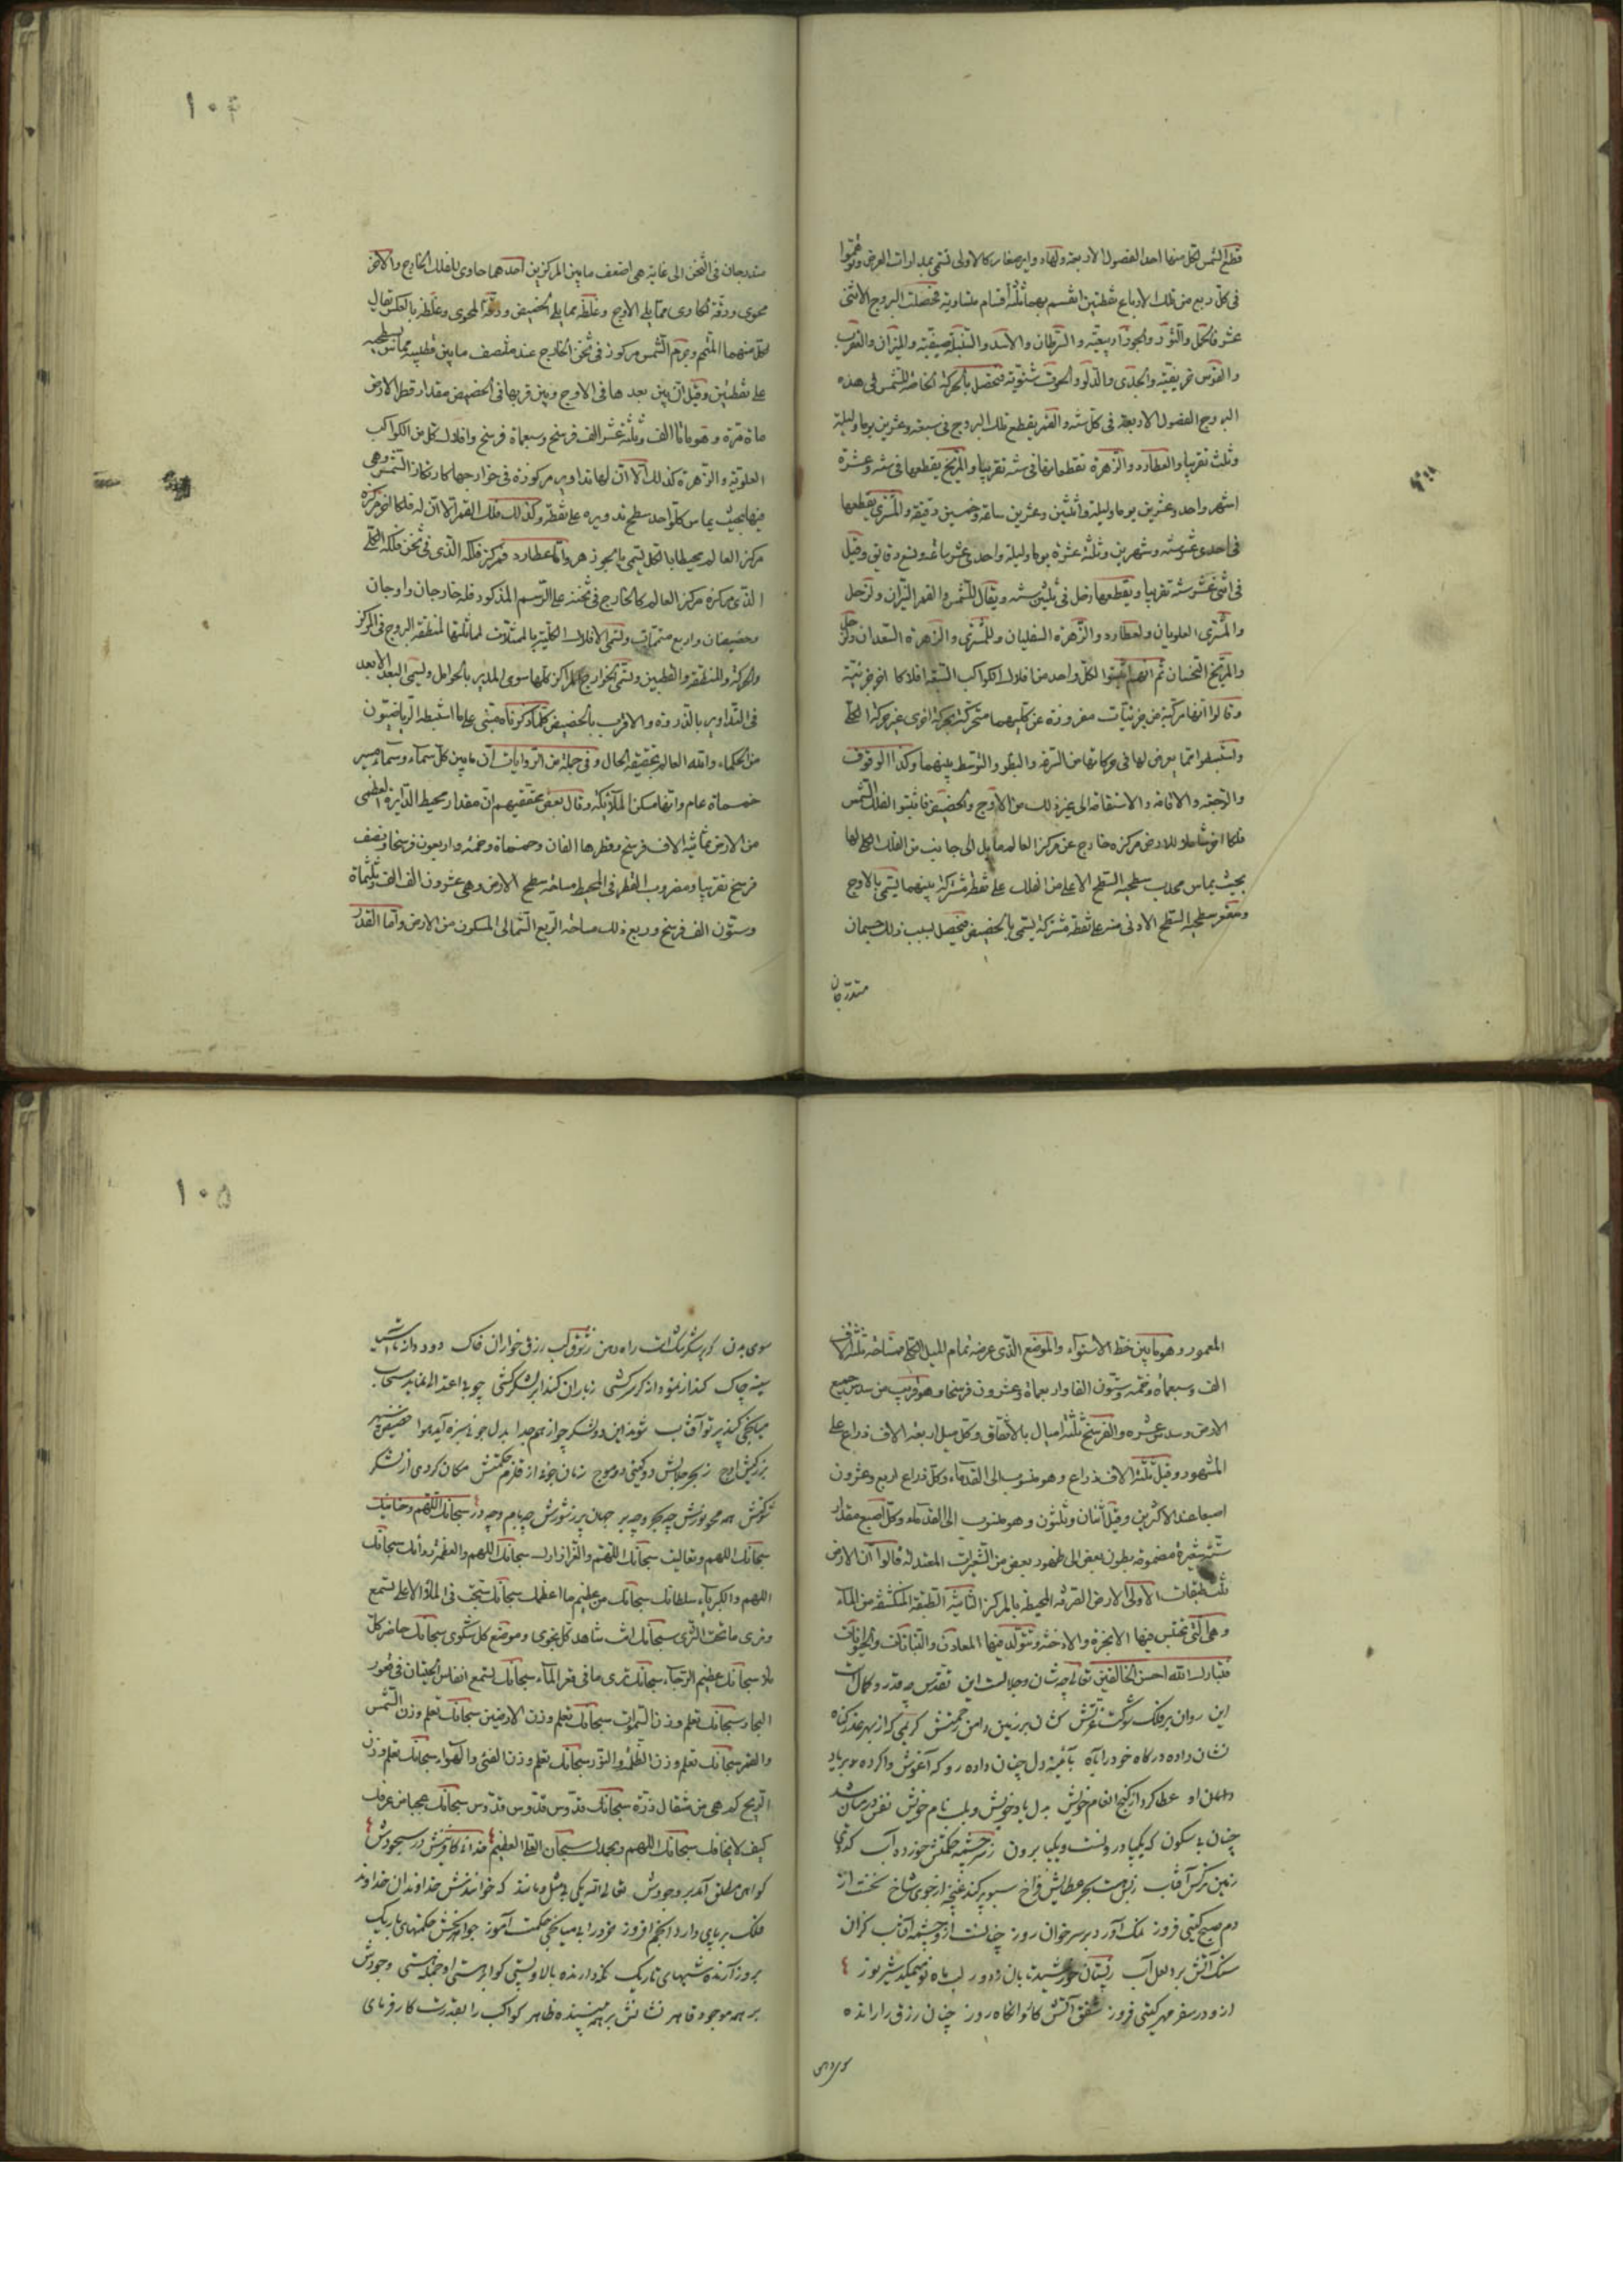 قطع الشمس لكل منها احد الفصول الاربعة ولهاد وايرصغار كالاولى تسمى بمدارات العرض وتوهموا
فى كل ربع من تلك الارباع نقطتين انقسم بهما ثلثة اقسام متساوية فحصلت البروج الاثنى
عشر فالحمل والثور والجوزا ربيعية والسرطان والاسد والسنبلة صيفية والميزان والعقرب
والقوس خريفية والجدى والدلو والحوت شتوية فتحصل بالحركة الخاصة للشمس فى هذه
البروج الفصول الاربعة فى كل سنة والقمر يقطع تلك البروج فى سبعة وعشرين يوما وليلة
وثلث تقريبا والعطارد والزهرة تقطعانها فى سنة تقريبا والمريخ يقطعها فى سنة وعشرة
اشهر واحد وعشرين يوما وليلة واثنتين وعشرين ساعة وخمسين دقيقة والمشترى يقطعها
فى احدى عشر سنة وشهرين وثلثة عشرة يوما وليلة واحدى عشر ساعة وتسع دقايق وقيل
فى اثنى عشر سنة تقريبا ويقطعها زحل فى ثلثين سنة ويقال للشمس والقمر النيران ولزحل
والمشترى العلويان ولعطارد والزهرة السفليان وللمشترى والزهرة السعدان ولزحل
والمريخ النحسان ثم انهم اثبتوا لكل واحد من افلاك الكواكب السبعة افلاكا اخر جزئية
وقالوا انها مركبة من جزئيات مفروزة عن كليهما متحركة بحركة اخرى غير حركة الكل
واستنبطوا مما يعرض لها فى حركاتها من السرعة والبطؤ والتوسط بينهما وكذا الوقوف
والرجعة والاقامة والاستقامة الى غير ذلك من الاوج والحضيض فاثبتوا لفلك الشمس
فلكا اخر شاملا للارض مركزه خارج عن مركز العالم مايل الى جانب من الفلك الكلى لها
بحيث يماس محدب سطحيه السطح الاعلى من الفلك على نقطة مشتركة بينهما يسمى بالاوج
ومقعر سطحيه السطح الادنى منه على نقطة مشتركة يسمى بالحضيض فيحصل بسبب ذلك جسمان
متدرجان
١٠٤
متدرجان فى الثخن الى غاية هى اضعف ما بين المركزين احدهما حاوى للفلك الخارج والاخر
محوى ورقة الحاوى مما يلى الاوج وغلظه مما يلى الحضيض ورقة المحوى وغلظه بالعكس يقال
لكل منهما المتمم وجرم الشمس مركوز فى ثخن الخارج عند منتصف ما بين قطبيه مماس بسطحيه
على نقطتين وقيل ان بين بعدها فى الاوج وبين قربها فى الحضيض مقدار قطر الارض
ماة مرة وهو مائتا الف وثلثة عشر الف فرسخ وسبعماة فرسخ وافلاك كل من الكواكب
العلوية والزهرة كذلك الا ان لها تداوير مركوزة فى خوارجها كارتكاز الشمس وهى
فيها بحيث يماس كل واحد سطح تدويره على نقطة وكذلك فلك القمر الا ان له فلكا اخر مركزه
مركز العالم محيطا بالكل يسمى بالجوزهر واما عطارد فمركز فلكه الذى فى ثخن فلكه الكلى
الذى مركزه مركز العالم كالخارج فى ثخنه على الرسم المذكور فله خارجان واوجان
وحضيضان واربع متممات وتسمى الافلاك الكلية بالممثلات لمماثلتها لمنطقة البروج فى المركز
والحركة والمنطقة والقطبين وتسمى الخوارج المراكز كلها سوى المدير بالحوامل ويسمى البعد الابعد
فى التداوير بالذروة والاقرب بالحضيض كلما ذكرناه مبتنى على ما استنبطه الرياضيون
من الحكماء والله العالم بحقيقة الحال وفى جملة من الروايات ان ما بين كل سماء وسماء مسير
خمسماة عام وانها مسكن الملائكة وقال بعض محققيهم ان مقدار محيط الدايرة العظمى
من الارض ثمانية الاف فرسخ وقطرها الفان وخمسماة وخمسة واربعون فرسخا ونصف
فرسخ تقريبا ومضروب القطر فى المحيط مساحة سطح الارض وهى عشرون الف الف وثلثماة
وستون الف فرسخ وربع ذلك مساحة الربع الشمالى المسكون من الارض واما القدر
المعمور وهو ما بين خط الاستواء والموضع الذى عرضه تمام الميل الكلى مساحته ثلثة الاف
الف وسبعماة وخمسة وستون الفا واربعماة وعشرون فرسخا وهو قريب من سدس جميع
الارض وسدس عشره والفرسخ ثلثة اميال بالاتفاق وكل ميل اربعة الاف ذراع على
المشهور وقيل ثلثة الاف ذراع وهو منسوب الى القدماء وكل ذراع اربع وعشرون
اصبعا عند الاكثرين وقيل اثنان وثلثون وهو منسوب الى القدماء وكل اصبع مقدار
ست شعيرة مضمومة بطون بعض الى ظهور بعض من الشعيرات المعتدلة قالوا ان الارض
ثلث طبقات الاولى الارض الصرفة المحيطة بالمركز الثانية الطبقة المنكشفة من الماء
وهى التى تحتبس فيها الابخرة والادخنة وتتولد فيها المعادن والنباتات والحيوانات
فتبارك الله احسن الخالقين تعالى چه شان وجلالست اين تقدس چه قدر وكمالست
اين روان بر فلك شوكت عزتش كشان بر زمين دامن رحمتش كريمى كه از بهر عذر گناه
نشان داده درگاه خود را بآه بآئينه دل چنان داده رو كه آغوش وا كرده بر ياد
دامان او عطا كرد از گنج انعام خويش به دل ياد خويش وبلب نام خويش
چنان با سكون كه يكپا درونست ويكپا برون ز سرچشمه حكمتش خورده آب كدوى
زمين نرگس آفتاب ز بس هست بحر عطايش فراخ سبو پر كند غنچه از جوى شاخ
دم صبح گيتى فروز نمك آورد بر سر خوان روز
سنگ آتش بر لعل آب ز پستان خورشيد تابان
ازو در سفر مهر گيتى فروز شفق آتش كاروانگاه روز چنان رزق را رانده
سوى دهن
١٠٥
سوى بدن
سينه چاك
ميانجى كند پرتو آفتاب شوند اين دو لشكر چو از هم جدا بدل
ز بحر جلالش دو گيتى دو موج
شوكتش همه محو نورش چه بحر وچه بر جهان پر ز شورش چه بام وچه در سبحانك اللهم وحنانيك
سبحانك اللهم وتعاليت سبحانك اللهم والعز ازارك سبحانك اللهم والعظمة ردائك سبحانك
اللهم والكبرياء سلطانك سبحانك من عظيم ما اعظمك سبحانك سبحت فى الملاء الاعلى تسمع
وترى ما تحت الثرى سبحانك انت شاهد كل نجوى وموضع كل شكوى سبحانك حاضر كل
ملاء سبحانك عظيم الرجاء سبحانك ترى ما فى قعر الماء سبحانك تسمع انفاس الحيتان فى قعور
البحار سبحانك تعلم وزن السموات سبحانك تعلم وزن الارضين سبحانك تعلم وزن الشمس
والقمر سبحانك تعلم وزن الظلمة والنور سبحانك تعلم وزن الفئ والهواء سبحانك تعلم وزن
الريح كم هى من مثقال ذرة سبحانك قدوس قدوس قدوس سبحانك عجبا من عرفك
كيف لا يخافك سبحانك اللهم وبحمدك سبحان العلى العظيم
گواهى مطلق آمد بر وجودش تعالى الله يكى بى مثل ومانند كه خوانندش خداوندان خداوند
فلك بر پاى دار و انجم افروز خرد را بى ميانجى حكمت آموز جواهر بخش حكمتهاى باريك
بروز آرنده شبهاى تاريك نگه دارنده بالا وپستى گوا بر هستى او جمله هستى وجودش
بر همه موجود قاهر نشانش بر همه بيننده ظاهر كواكب را بقدرت كار فرماى